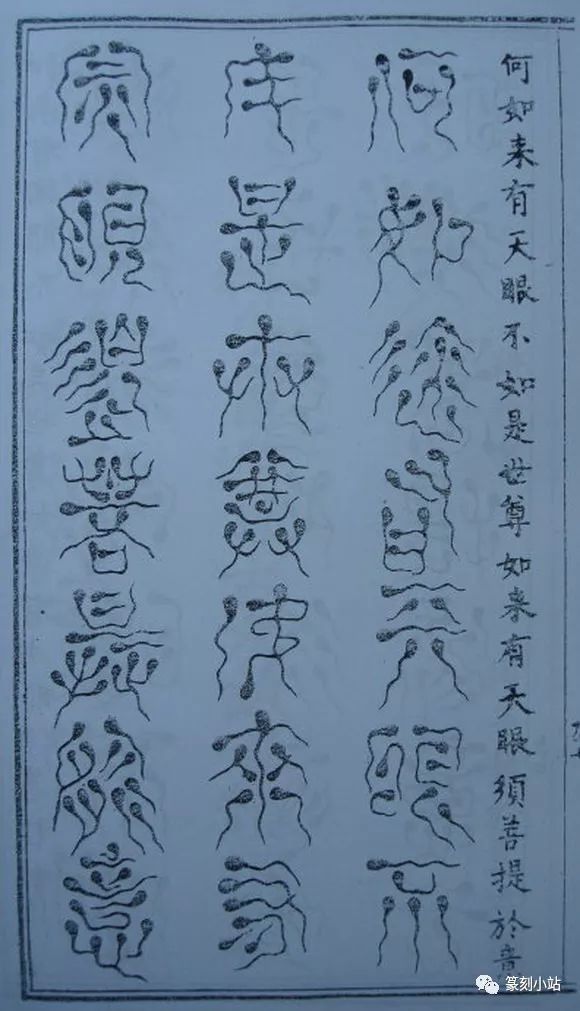 何如来有天眼不如是世尊如来有天眼須菩提於意
何如來有天眼不
如是世尊如來有
天眼須菩提於意
篆刻小站